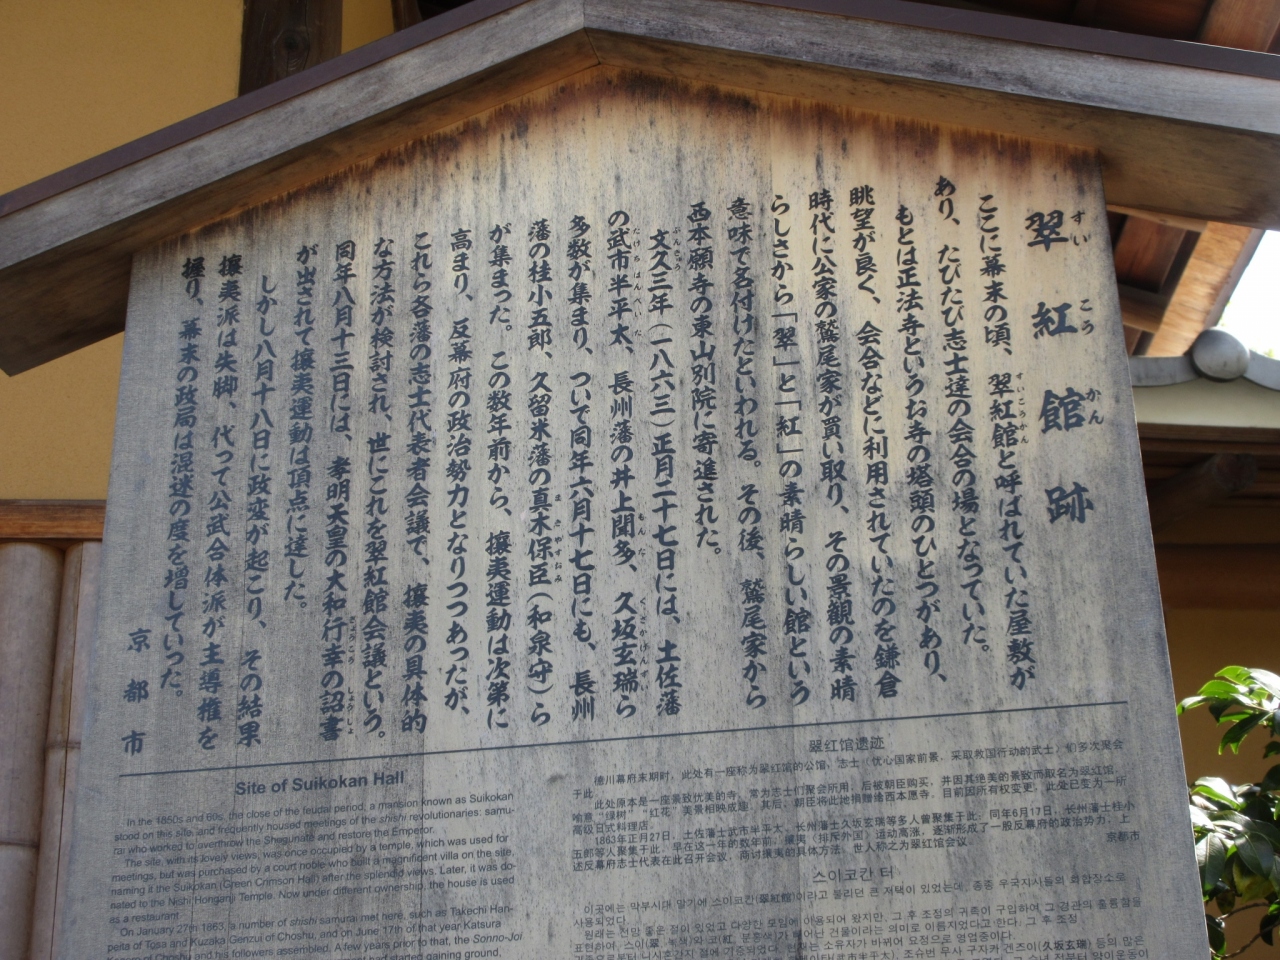 翠紅館跡
ずい こう かん
ここに幕末の頃、翠紅館と呼ばれていた屋敷が
ずいこうかん
あり、たびたび志士達の会合の場となっていた。
もとは正法寺というお寺の塔頭のひとつがあり、
眺望が良く、会合などに利用されていたのを鎌倉
時代に公家の鷲尾家が買い取り、その景観の素晴
らしさから「翠」と「紅」の素晴らしい館という
意味で名付けたといわれる。その後、鷲尾家から
西本願寺の東山別院に寄進された。
文久三年(一八六三)正月二十七日には、土佐藩
ぶんきゅう
の武市半平太、長州藩の井上聞多、久坂玄瑞ら
たけちはんぺいた もんた くさかげんずい
多数が集まり、ついで同年六月十七日にも、長州
藩の桂小五郎、久留米藩の真木保臣(和泉守)ら
まきやすおみ
が集まった。この数年前から、攘夷運動は次第に
高まり、反幕府の政治勢力となりつつあったが、
これら各藩の志士代表者会議で、攘夷の具体的
な方法が検討され、世にこれを翠紅館会議という。
同年八月十三日には、孝明天皇の大和行幸の詔書
ぎょうこう しょうしょ
が出されて攘夷運動は頂点に達した。
しかし八月十八日に政変が起こり、その結果
攘夷派は失脚、代って公武合体派が主導権を
握り、幕末の政局は混迷の度を増していった。
京都市
Site of Suikokan Hall
In the 1850s and 60s, the close of the feudal period, a mansion known as Suikokan
stood on this site, and frequently housed meetings of the shishi revolutionaries: samu-
rai who worked to overthrow the Shogunate and restore the Emperor.
The site, with its lovely views, was once occupied by a temple, which was used for
meetings, but was purchased by a court noble who built a magnificent villa on the site,
naming it the Suikokan (Green Crimson Hall) after the splendid views. Later, it was do-
nated to the Nishi Honganji Temple. Now under different ownership, the house is used
as a restaurant.
On January 27th 1863, a number of shishi samurai met here, such as Takechi Han-
peita of Tosa and Kuzaka Genzui of Choshu, and on June 17th of that year Katsura
Kogoro of Choshu and his followers assembled. A few years prior to that, the Sonno-Joi
had started gaining ground,
翠红馆遗迹
德川幕府末期时，此处有一座称为翠红馆的公馆，志士（忧心国家前景，采取救国行动的武士）们多次聚会
于此。
此处原本是一座景致优美的寺，常为志士们聚会所用，后被朝臣购买，并因其绝美的景致而取名为翠红馆，
喻意“绿树”“红花”美景相映成趣。其后，朝臣将此地捐赠给西本愿寺，目前因所有权变更，此处已变为一所
高级日式料理店。
1863年正月27日，土佐藩士武市半平太、长州藩士久坂玄瑞等多人曾聚集于此，同年6月17日，长州藩士桂小
五郎等人聚集于此。早在这一年的数年前，攘夷（排斥外国）运动高涨，逐渐形成了一股反幕府的政治势力，上
述反幕府志士代表在此召开会议，商讨攘夷的具体方法，世人称之为翠红馆会议。
京都市
스이코칸 터
이곳에는 막부시대 말기에 스이코칸(翠紅館)이라고 불리던 큰 저택이 있었는데, 종종 우국지사들의 회합장소로
사용되었다.
원래는 전망 좋은 절이 있었고 다양한 모임에 이용되어 왔지만, 그 후 조정의 귀족이 구입하여 그 경관의 훌륭함을